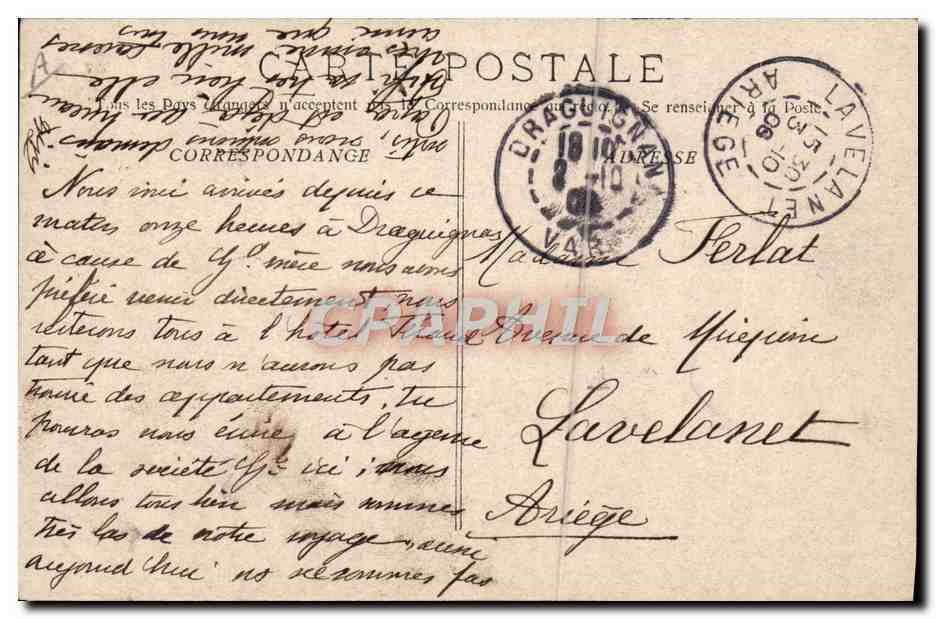 CARTE POSTALE
Tous les Pays étrangers n'acceptent pas la Correspondance au recto. Se renseigner à la Poste
CORRESPONDANCE
ADRESSE
Nous arrivés depuis ce
matin onze heures à Draguignan
à cause de Gd mère nous avons
préféré venir directement, nous
resterons tous à l'hôtel
tant que nous n'aurons pas
trouvé des appartements, tu
pourras nous écrire à l'agence
de la société Gle ici, nous
allons tous bien mais sommes
très las de notre voyage, aussi
aujourd'hui ns ne sommes pas
sortis, nous
est déjà
elle
mille caresses
Madame Ferlat
Avenue de Mirepoix
Lavelanet
Ariège
DRAGUIGNAN
VAR
LAVELANET
15 30
3 - 10
06
ARIEGE
CPAPHIL